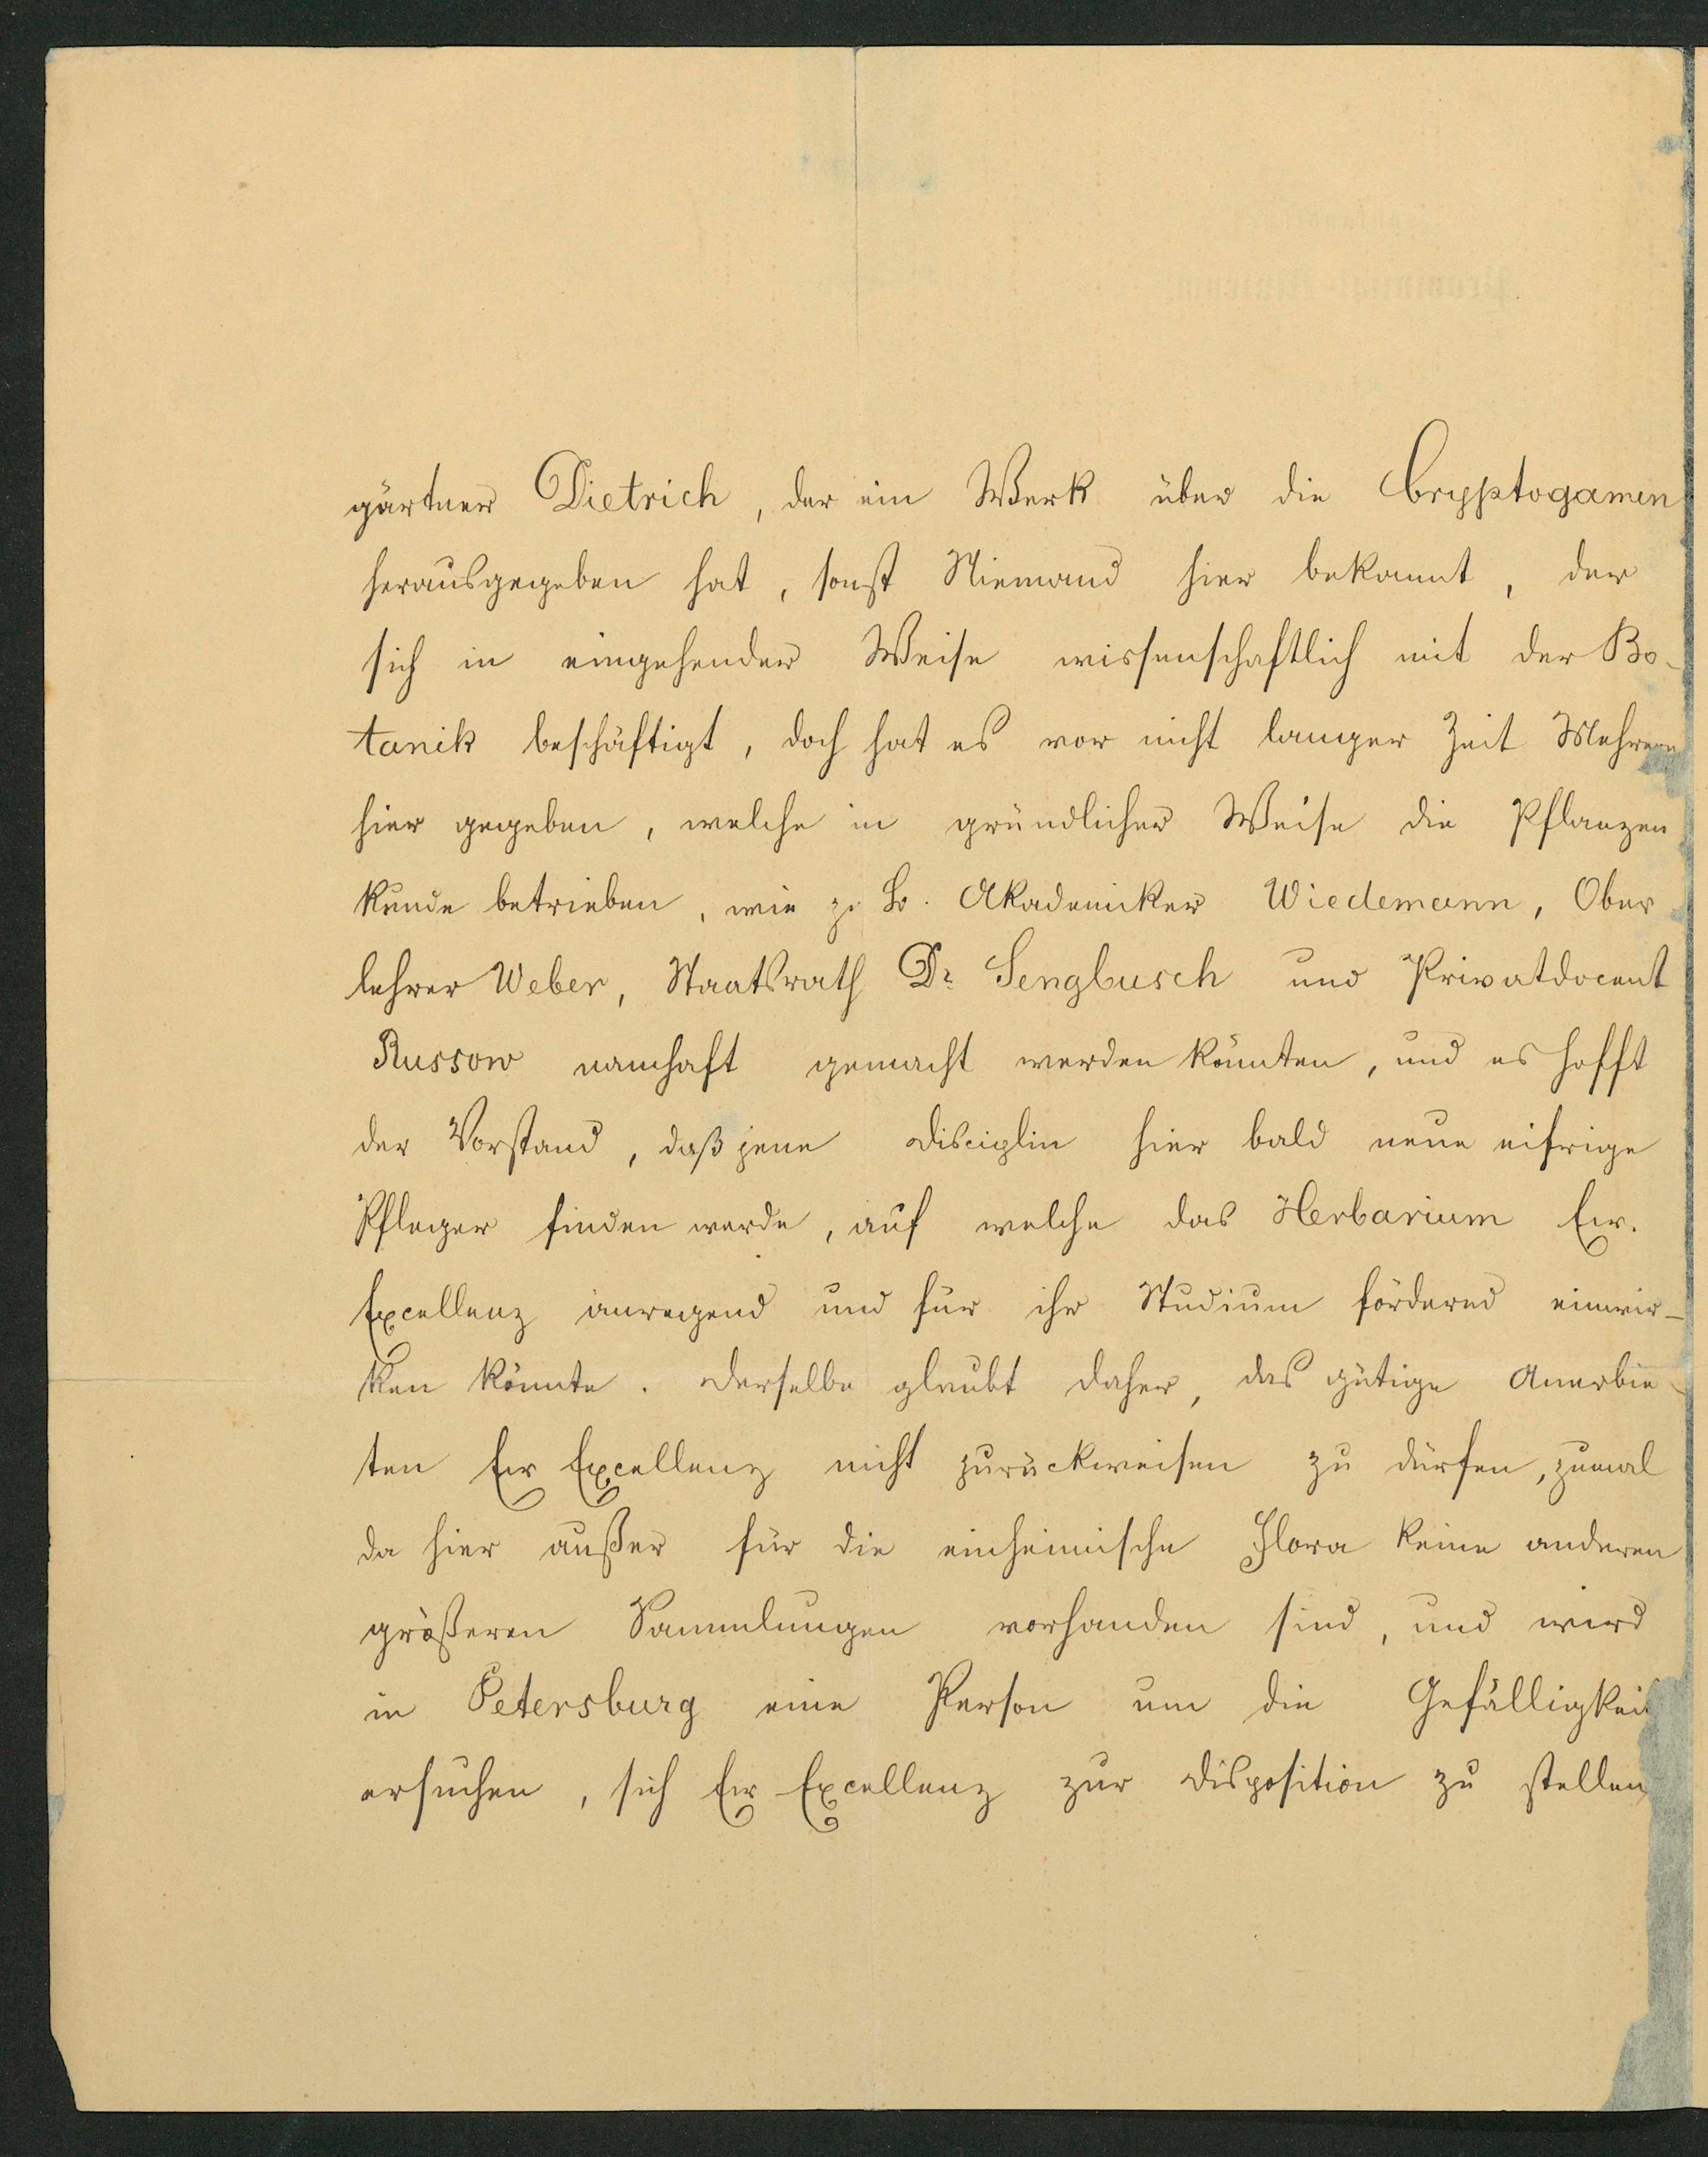 gärtner Dietrich, der ein Werk über die Cryptogamen
herausgegeben hat, sonst Niemand hier bekannt, der
sich in eingehender Weise wissenschaftlich mit der Bo-
tanik beschäftigt, doch hat es vor nicht langer Zeit Mehrere
hier gegeben, welche in gründlicher Weise die Pflanzen
kunde betrieben, wie z. B. Akademiker Wiedemann, Ober
lehrer Weber, Staatsrath Dr Sengbusch und Privatdocent
Russow namhaft gemacht werden könnten, und es hofft
der Vorstand, daß jene Disciplin hier bald neue eifrige
Pfleger finden werde, auf welche das Herbarium Ew.
Excellenz anregend und für ihr Studium fördernd einwir-
ken könnte. Derselbe glaubt daher, das gütige Anerbie-
ten Ew Excellenz nicht zurückweisen zu dürfen, zumal
da hier außer für die einheimische Flora keine anderen
größeren Sammlungen vorhanden sind, und wird
in Petersburg eine Person um die Gefälligkeit
ersuchen, sich Ew Excellenz zur Disposition zu stellen